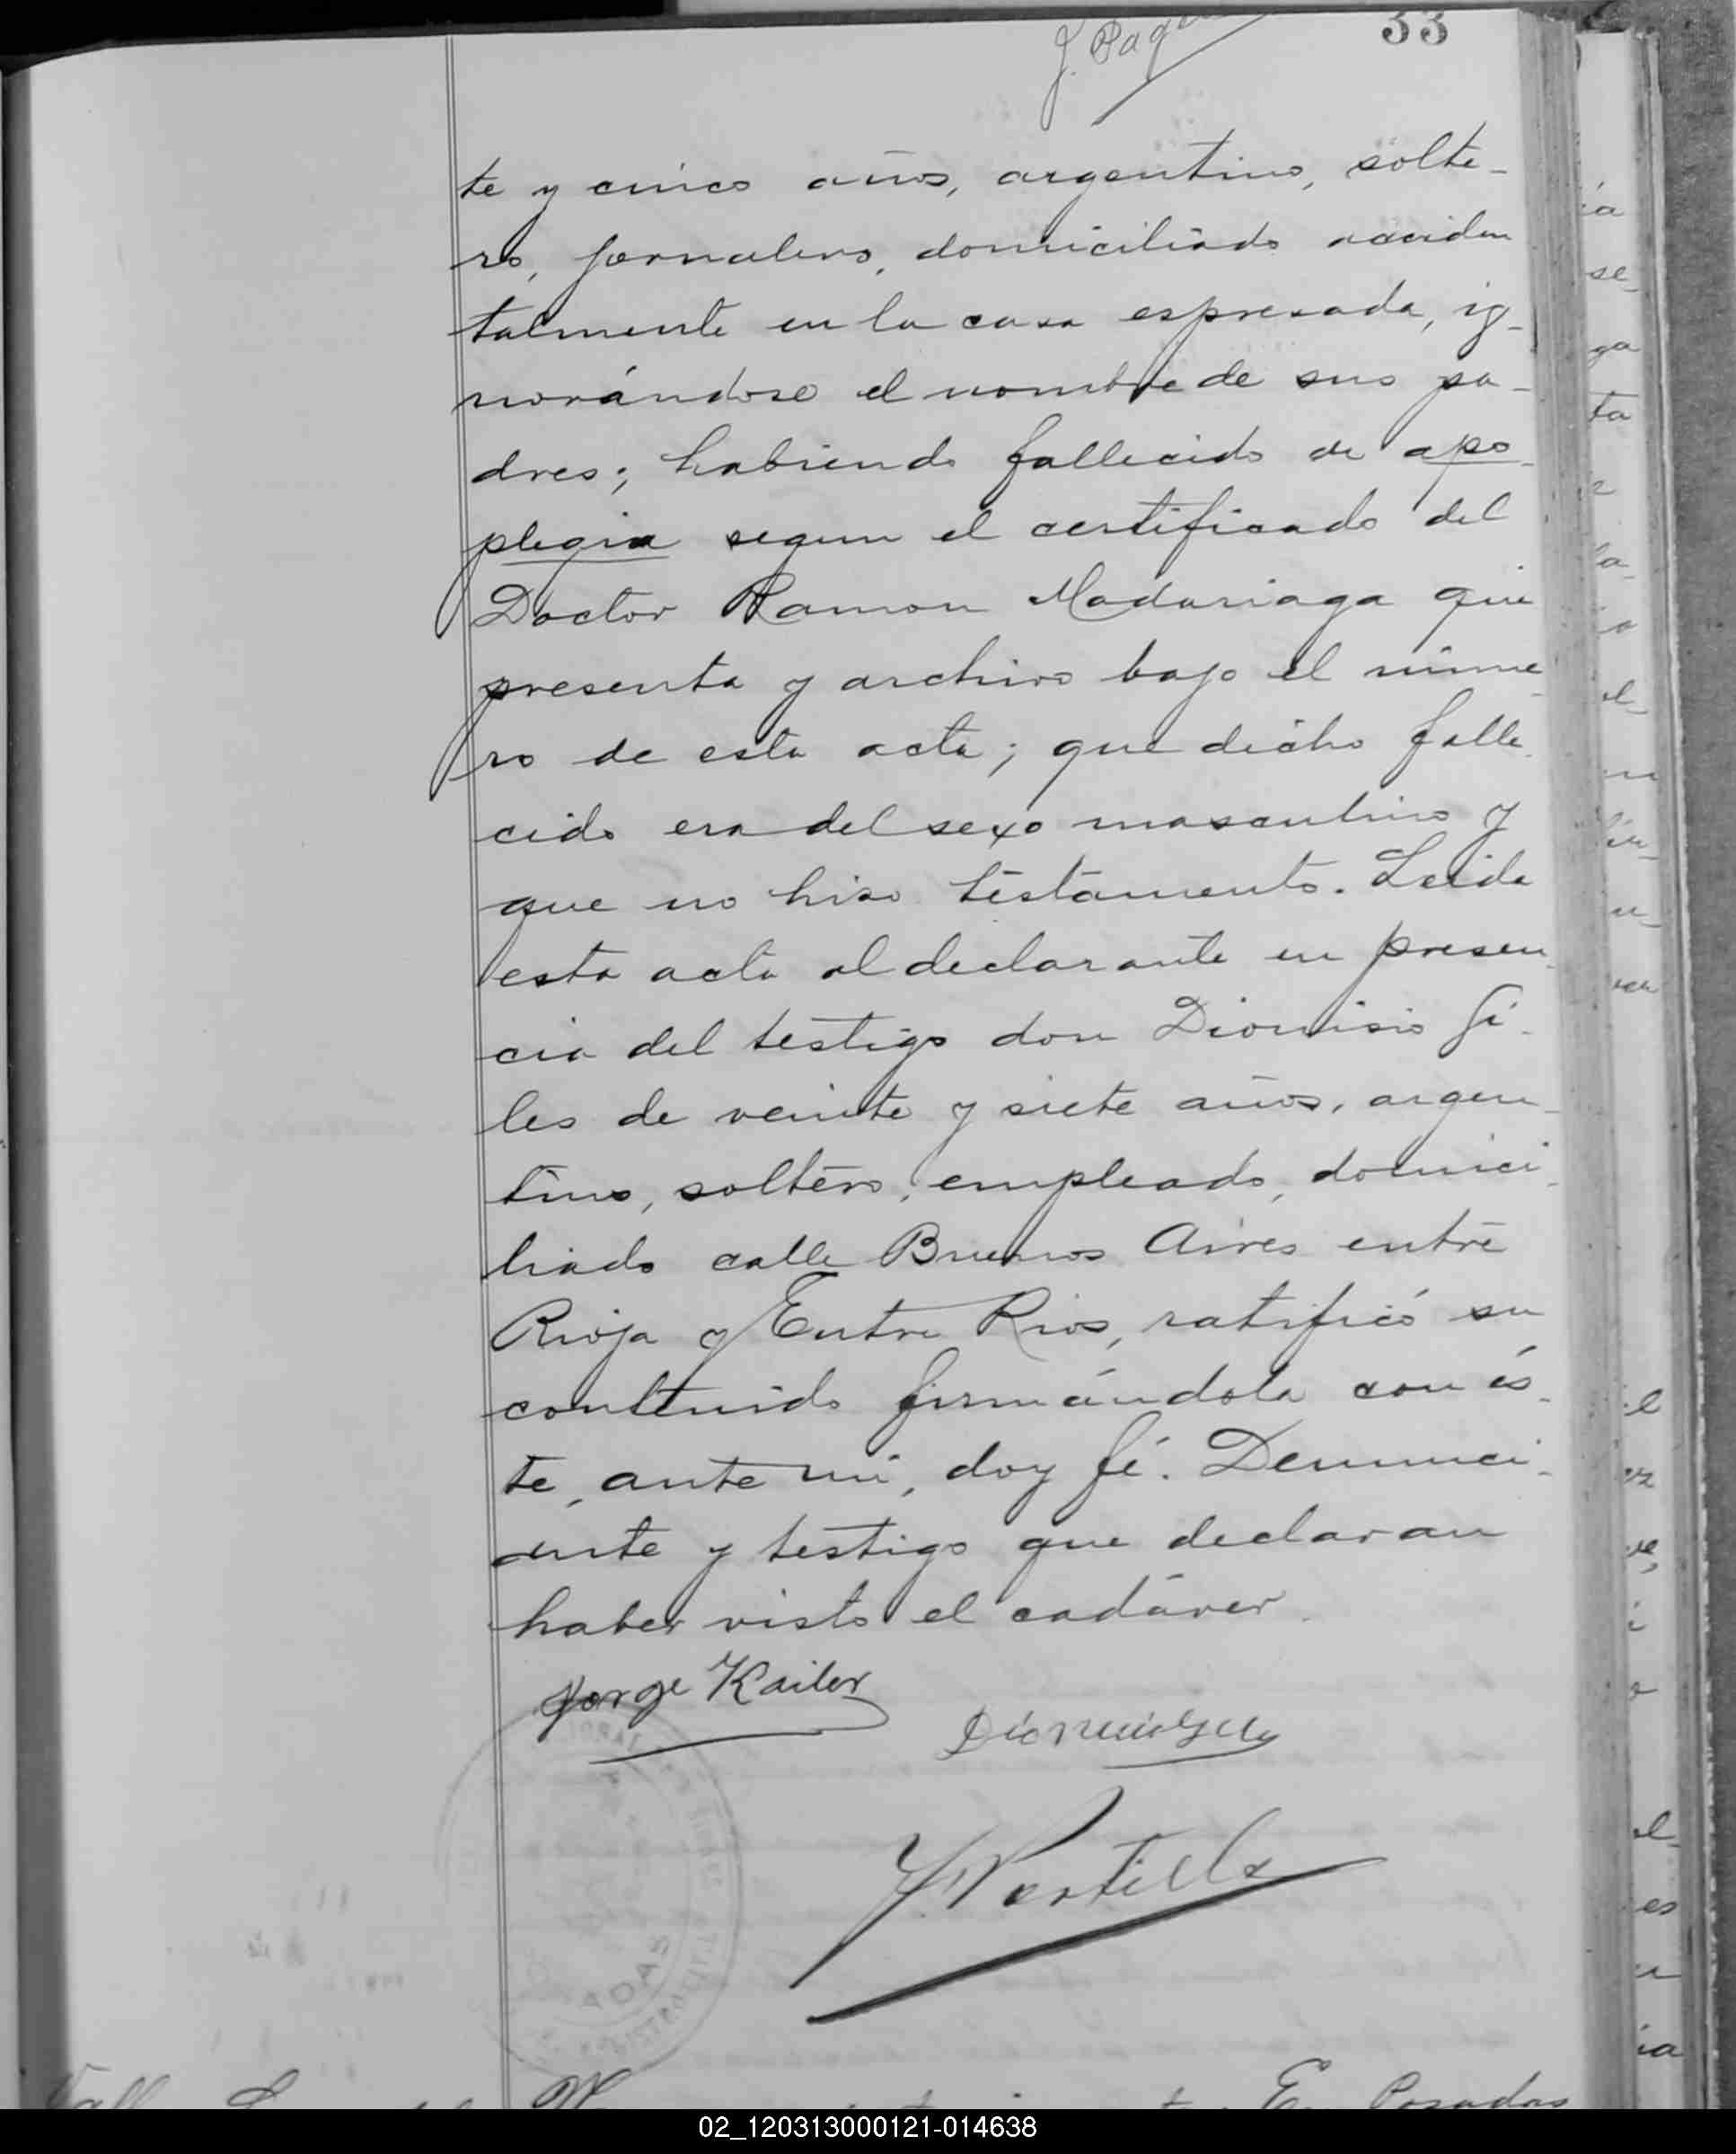 33
te y cinco años, argentino, solte-
ro, jornalero, domiciliado acciden
talmente en la casa espresada, ig-
norándose el nombre de sus pa-
dres; habiendo fallecido de apo-
plegia segun el certificado del
Doctor Ramon Madariaga que
presenta y archivo bajo el núme-
ro de esta acta; que dicho falle-
cido era del sexo masculino y
que no hiso testamento. Leida
esta acta al declarante en presen-
cia del testigo don Dionisio Gi-
les de veinte y siete años, argen-
tino, soltero, empleado, domici-
liado calle Buenos Aires entre
Rioja y Entre Rios, ratificó su
contenido firmándola con és-
te, ante mi, doy fé. Denunci-
ante y testigo que declaran
haber visto el cadáver.
Jorge Kailer
Dionicio Giles
En Posadas
02_120313000121-014638